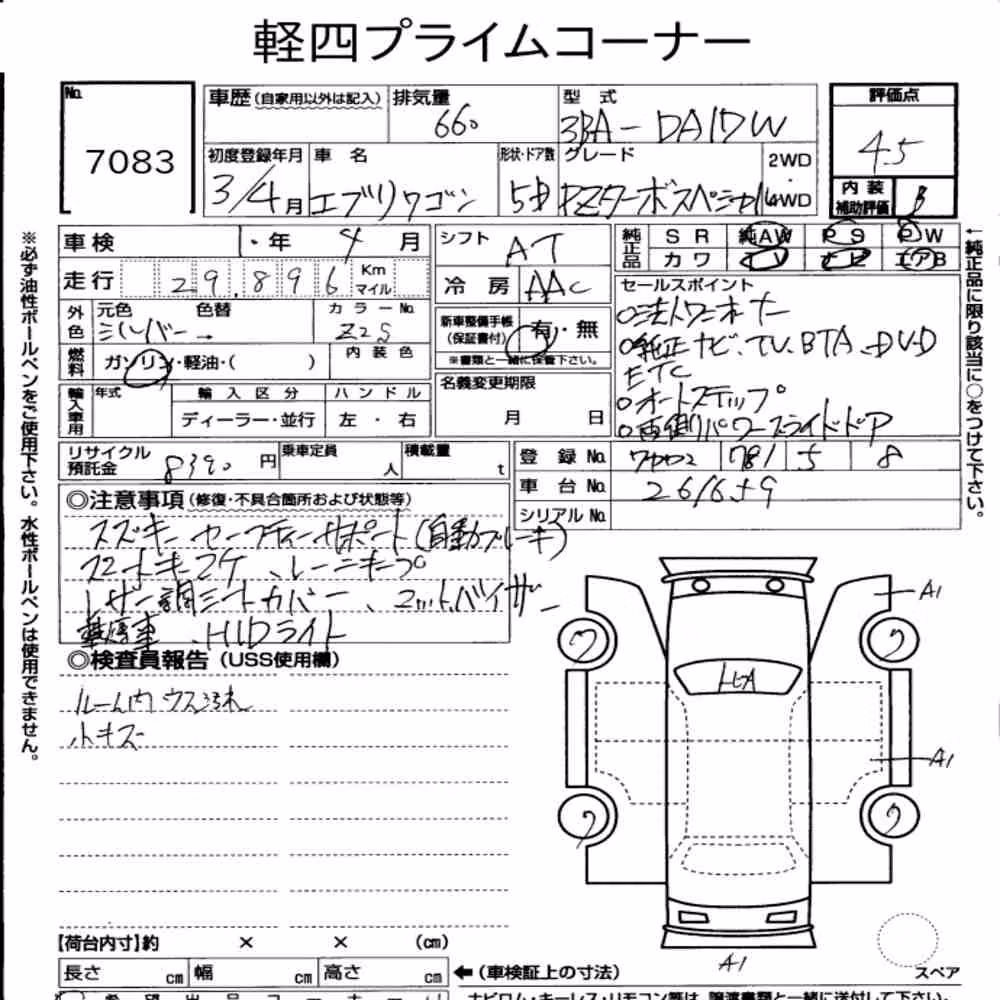 軽四プライムコーナー
No. 7083
車歴(自家用以外は記入) 排気量 660 型式 3BA-DA17W 評価点 4.5
初度登録年月 3/4月 車名 エブリワゴン 形状・ドア数 5D グレード PZターボスペシャル 2WD・4WD 内装補助評価 B
※必ず油性ボールペンをご使用下さい。水性ボールペンは使用できません。
車検 ・年 4月
走行 29,896 Km マイル
外色 元色 シルバー → 色替 カラーNo. Z2S
燃料 ガソリン・軽油・( ) 内装色
輸入車用 年式 輸入区分 ディーラー・並行 ハンドル 左・右
シフト AT
冷房 AAC
新車整備手帳(保証書付) 有・無
※書類と一緒に保管下さい。
名義変更期限 月 日
純正品 SR 純AW PS PW
カワ TV ナビ エアB
←純正品に限り該当に○をつけて下さい。
セールスポイント
○法人ワンオーナー
○純正ナビ、TV、BTA、DVD
ETC
○オートステップ
○両側パワースライドドア
リサイクル預託金 8390円 乗車定員 人 積載量 t
登録No. 781 5 8
車台No. 261659
シリアルNo.
◎注意事項(修復・不具合箇所および状態等)
スズキ セーフティーサポート(自動ブレーキ)
スマートキー2ケ、レーンキープ
レザー調シートカバー、マットバイザー
禁煙車、HIDライト
◎検査員報告(USS使用欄)
ルーム内ウスヨゴレ
小キズ
A1
A1
A1
ワ
ワ
ワ
ワ
スペア
【荷台内寸】約 × × (cm)
長さ cm 幅 cm 高さ cm ←(車検証上の寸法)
希望出品コーナー
ナビロム・キーレス・リモコン等は、譲渡書類と一緒に送付して下さい。